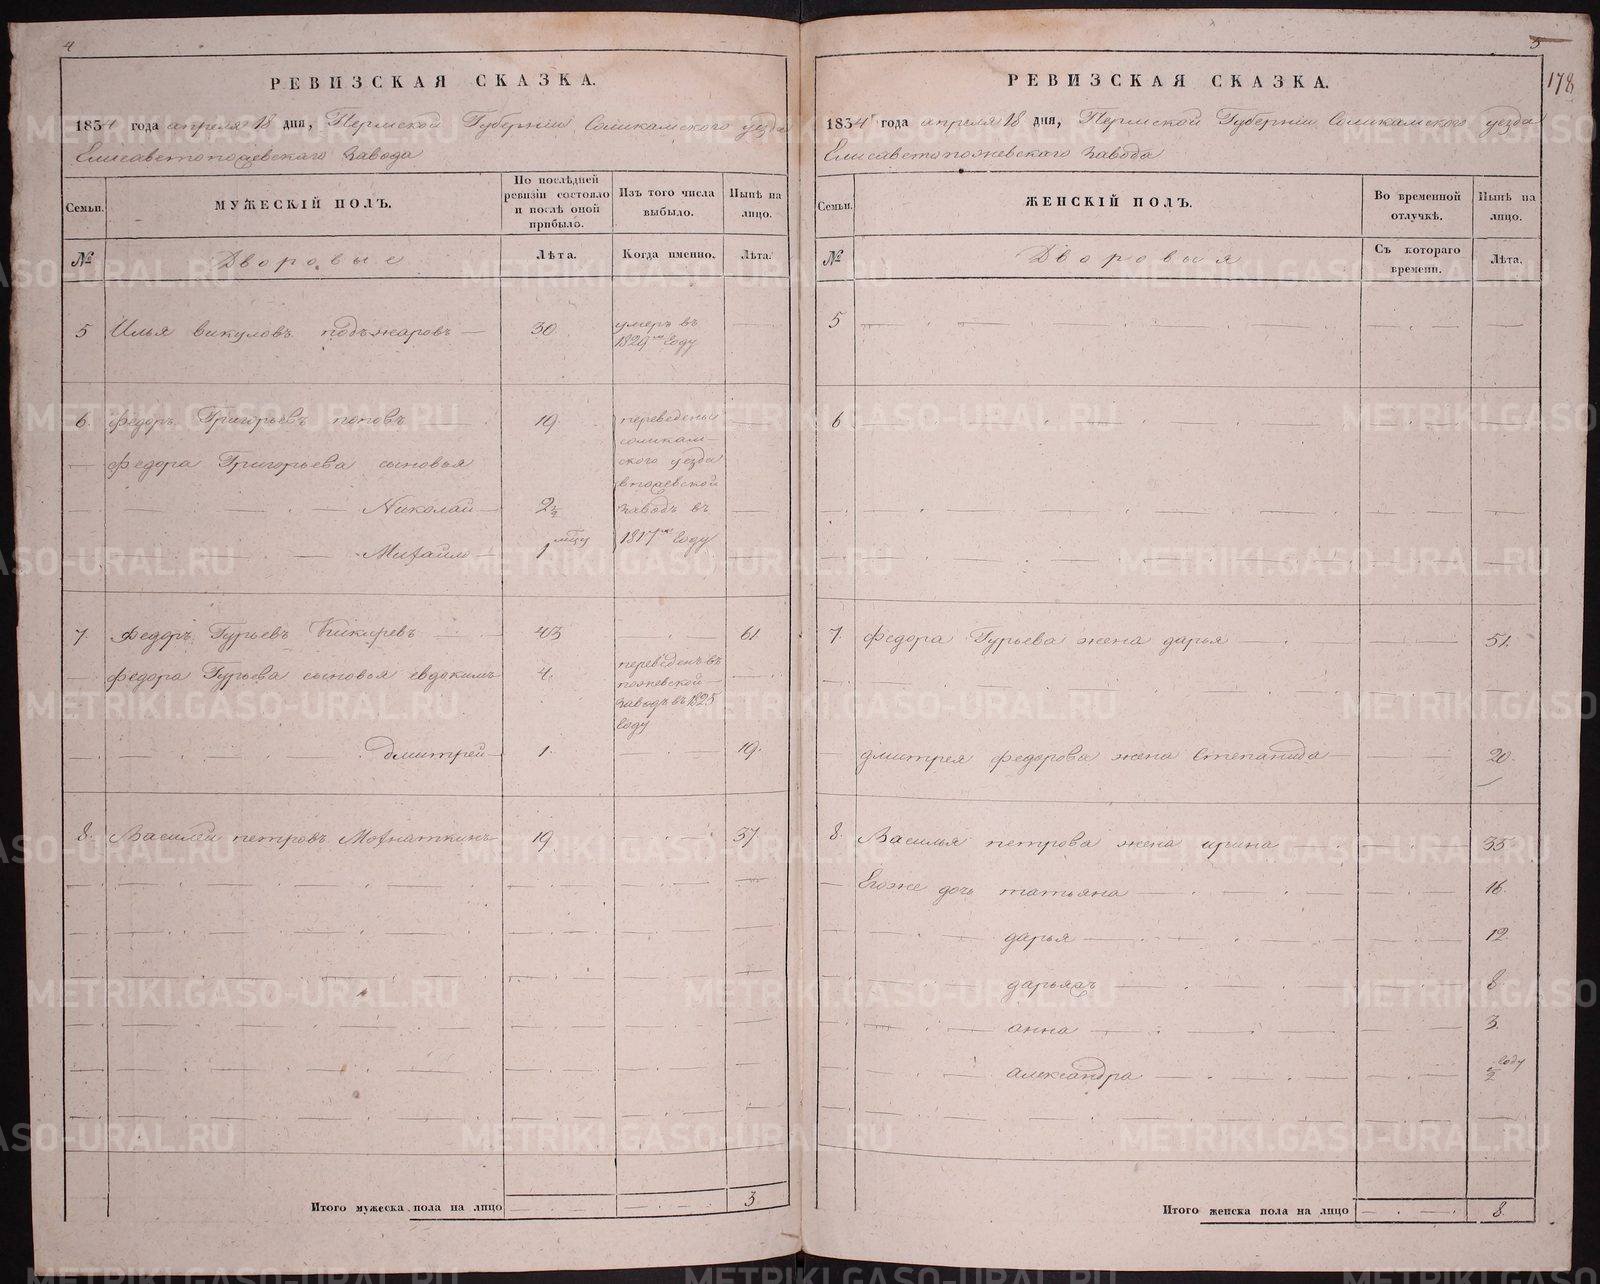 4
РЕВИЗСКАЯ СКАЗКА.
1834 года апреля 18 дня, Пермской Губернiи Соликамскаго уезда
Елисаветопожевскаго Завода
Семьи. МУЖЕСКIЙ ПОЛЪ. По послѣдней ревизiи состояло и послѣ оной прибыло. Изъ того числа выбыло. Нынѣ на лицо.
№ Дворовые Лѣта. Когда именно. Лѣта.
5 Илья викуловъ подъжаровъ — 30. умеръ въ 1829мъ Году
6. Федоръ Григорьевъ поповъ 19. переведены соликамского уезда впожевской Заводъ въ 1817мъ Году
Федора Григорьева сыновья
Николай 2 1/2
Михайло 1 мцу
7. Федоръ Гурьевъ 43 61.
Федора Гурьева сыновья евдокимъ 4. переведенъ въ пожевской Заводъ въ 1825 Году
дмитрей 1. 19.
8. Василей петровъ Мохнаткинъ 19. 37
Итого мужеска пола на лицо 3
5
178
РЕВИЗСКАЯ СКАЗКА.
1834 года апреля 18 дня, Пермской Губернiи Соликамского уезда
Елисаветопожевскаго Завода
Семьи. ЖЕНСКIЙ ПОЛЪ. Во временной отлучкѣ. Нынѣ на лицо.
№ Дворовыя Съ котораго времени. Лѣта.
5
6
7. Федора Гурьева жена дарья 51.
дмитрея федорова жена Степанида 20.
8. Василья петрова жена ирина 35
Егоже дочь татьяна 16.
дарья 12.
8
анна 3.
александра 1/2 Году
Итого женска пола на лицо 8.
METRIKI.GASO-URAL.RU